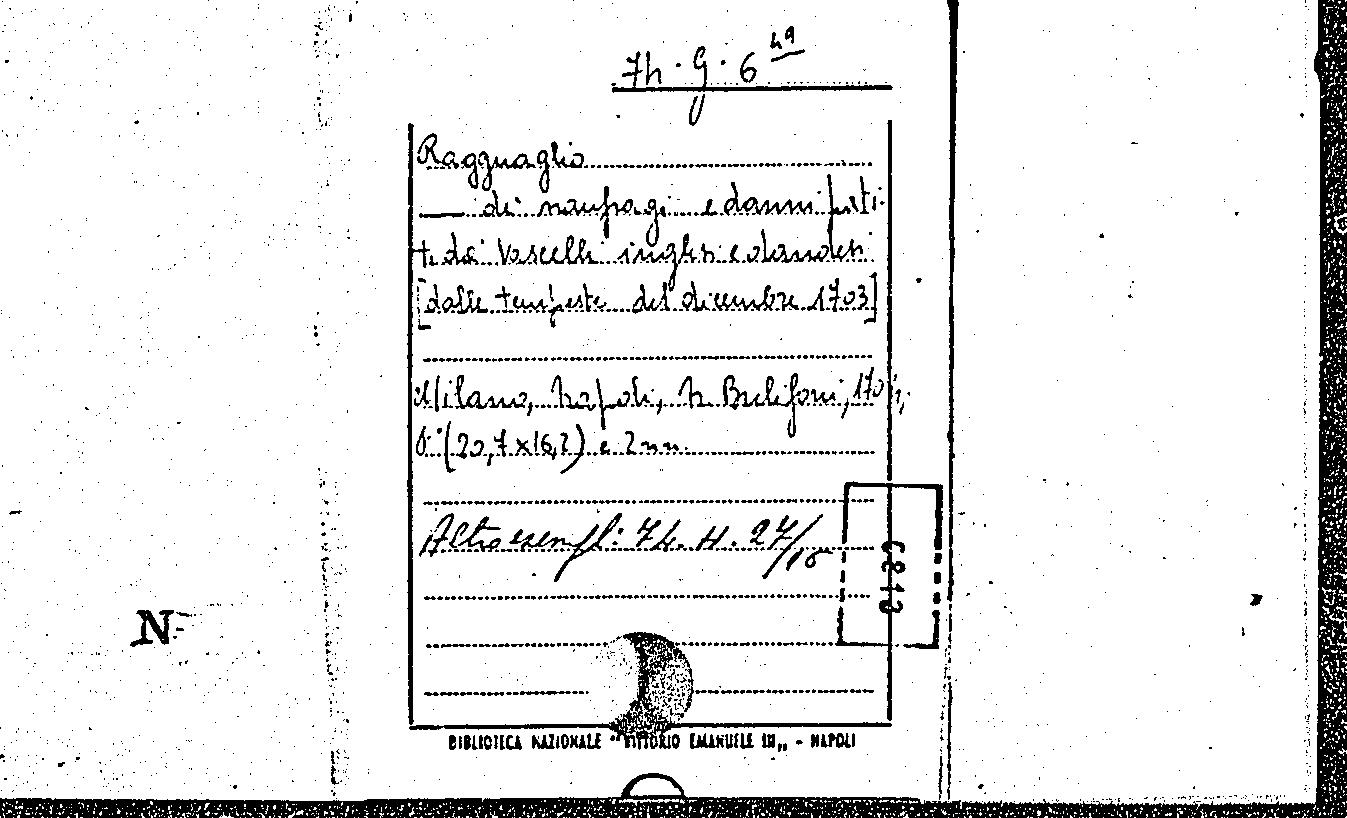 74. G. 6 49
Ragguaglio
— dei naufragi e danni pati-
ti dai Vascelli inglesi e olandesi
[dalle tempeste del dicembre 1703]
Milano, Napoli, N. Bulifoni, 170
(20,7x16,2) c. 2 nn.
Altro esempl: 74. H. 27/16
C813
N
BIBLIOTECA NAZIONALE "VITTORIO EMANUELE III„ - NAPOLI